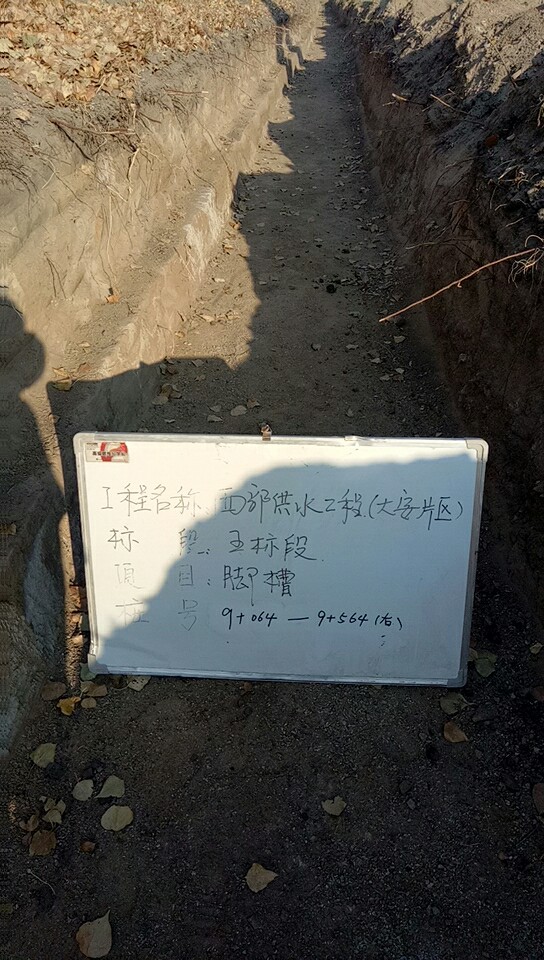 工程名称:西部供水工程.(大安片区)
标 段:五标段
项 目:脚槽
桩 号 9+064 — 9+564(右)